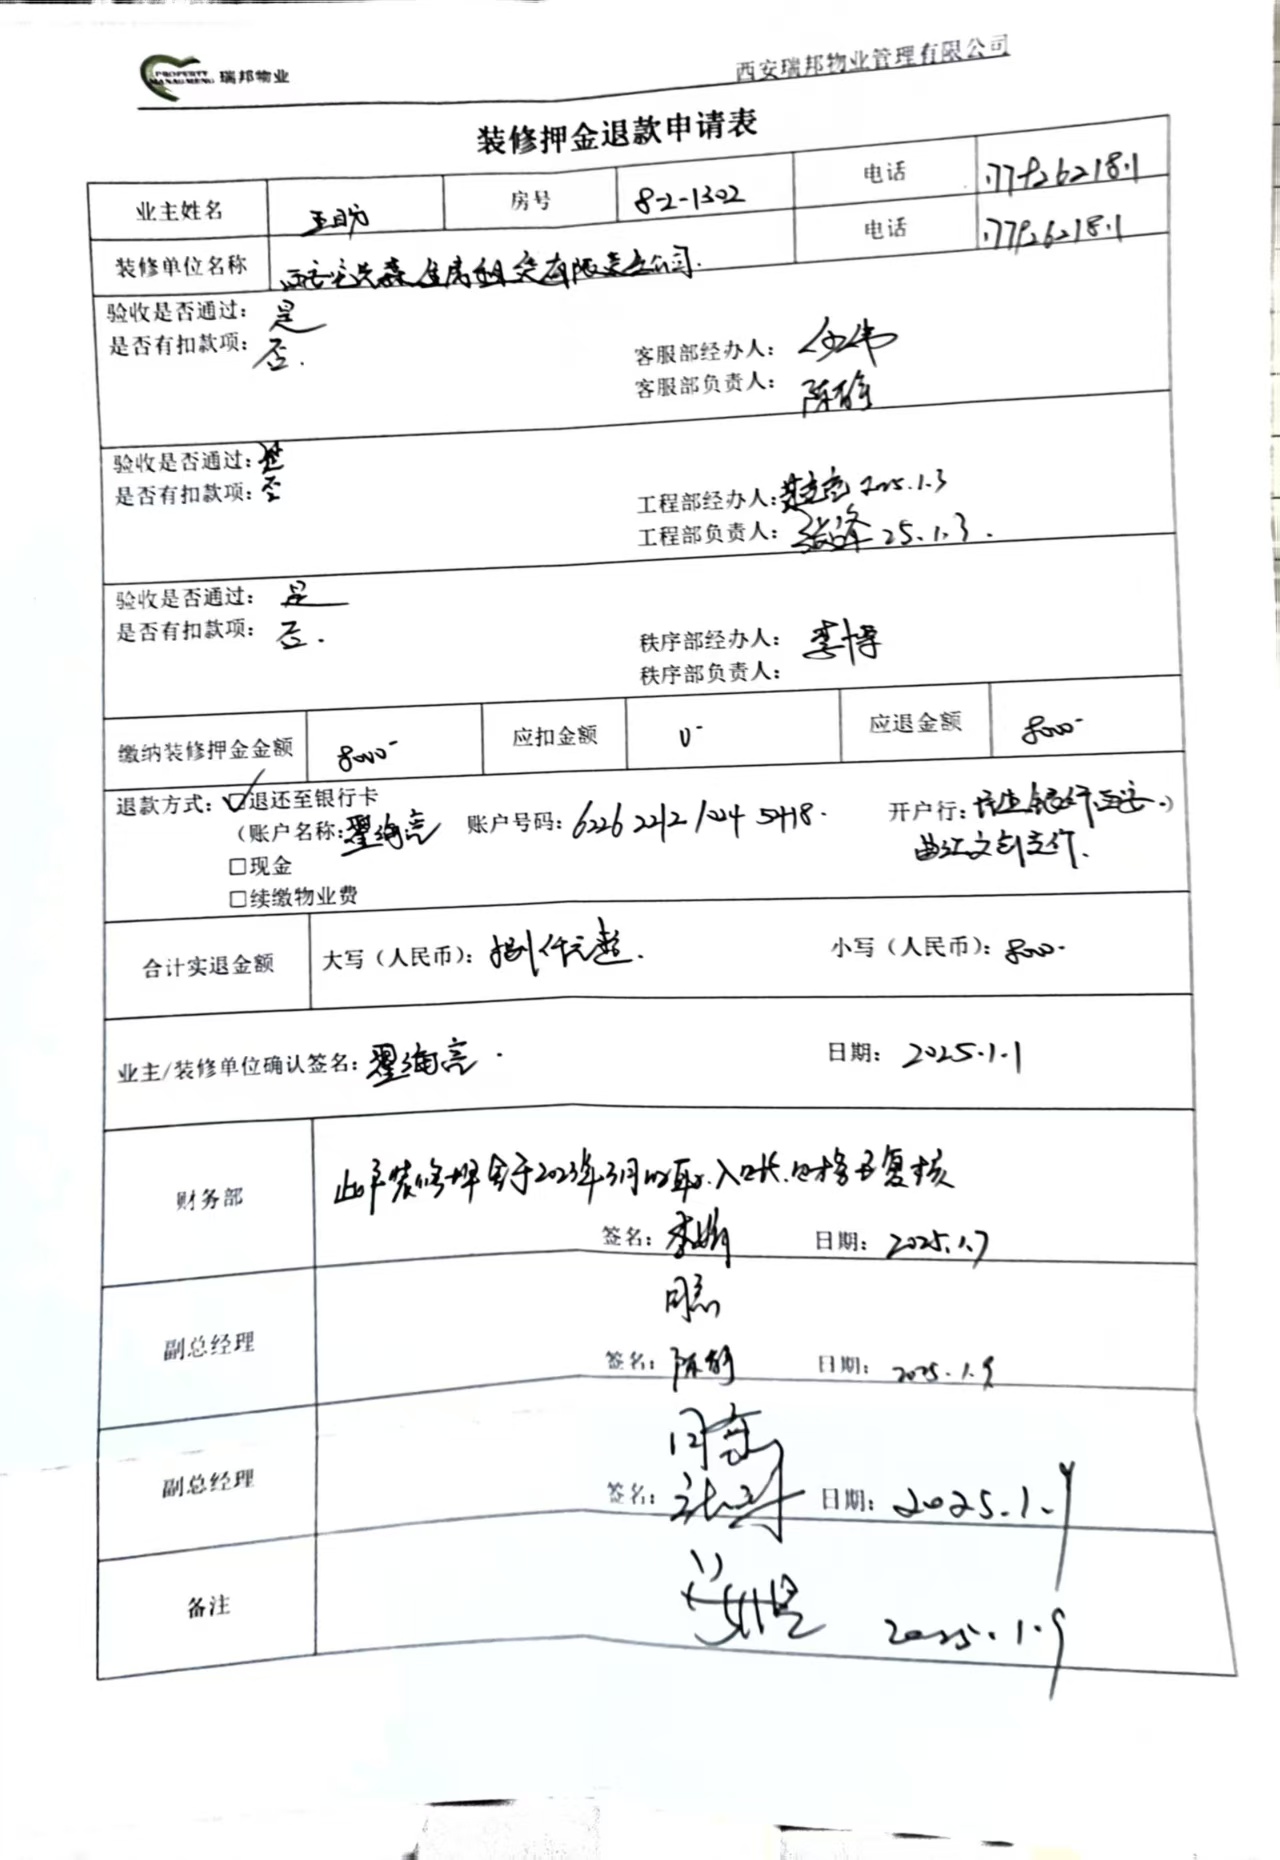 PROPERTY MANAGMENG 瑞邦物业
西安瑞邦物业管理有限公司
装修押金退款申请表
业主姓名 房号 8-2-1302 电话
装修单位名称 电话
验收是否通过: 是
是否有扣款项: 否.
客服部经办人:
客服部负责人:
验收是否通过: 是
是否有扣款项: 否
工程部经办人: 2025.1.3
工程部负责人: 25.1.3.
验收是否通过: 是
是否有扣款项: 否.
秩序部经办人: 李博
秩序部负责人:
缴纳装修押金金额 8000- 应扣金额 0- 应退金额 8000-
退款方式: ☑退还至银行卡
(账户名称: 翟海亮 账户号码: 6226 2212 1024 5418. 开户行: 民生银行西安
曲江文创支行.)
□现金
□续缴物业费
合计实退金额 大写(人民币): 捌仟元整. 小写(人民币): 8000-
业主/装修单位确认签名: 翟海亮. 日期: 2025.1.1
财务部 此户装修押金于2023年3月收取.入账.财务已复核
签名: 李娟 日期: 2025.1.7
副总经理 同意
签名: 陈静 日期: 2025.1.9
副总经理 同意
签名: 日期: 2025.1.9
备注 2025.1.9